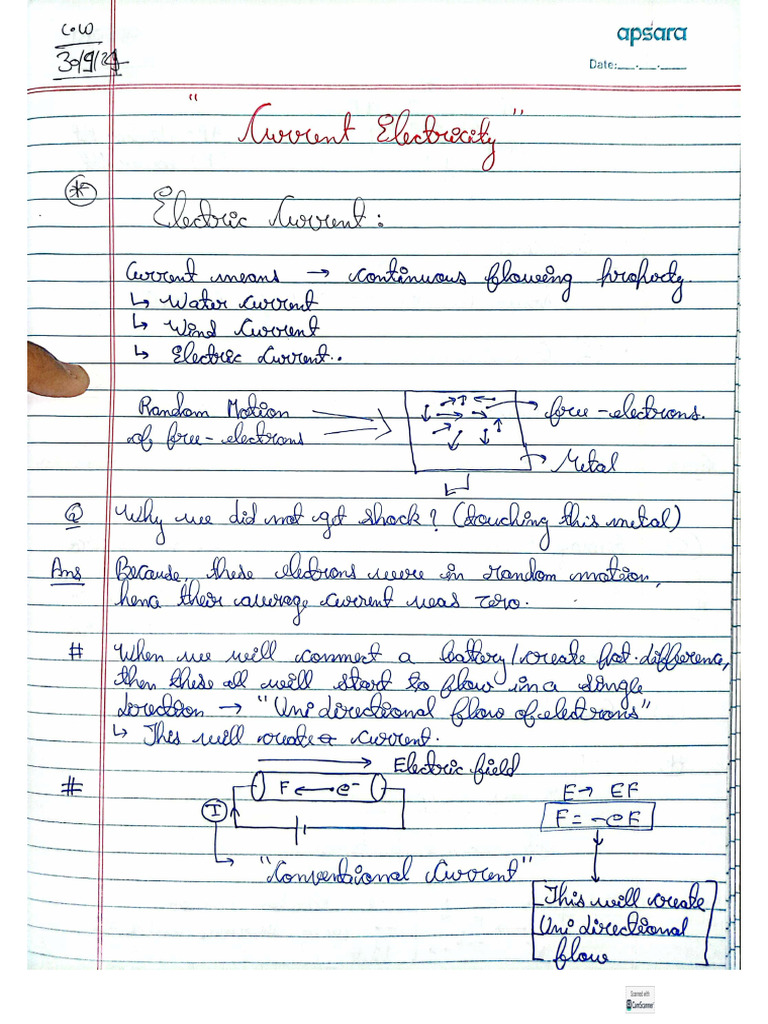 C.W
30/9/24
apsara
Date:__.__.__
" Current Electricity "
* Electric Current :
Current means → continuous flowing property.
↳ Water Current
↳ Wind Current
↳ Electric Current..
Random Motion
of free-electrons
free-electrons.
Metal
Q Why we did not get shock? (touching this metal)
Ans Because, these electrons were in random motion,
hence their average current was zero.
# When we will connect a battery/create pot.difference,
then these all will start to flow in a single
direction → "Uni directional flow of electrons"
↳ This will create current.
# Electric field
F ← e⁻
I
E → EF
F = -eF
"Conventional Current"
This will create
Uni directional
flow
Scanned with
CamScanner